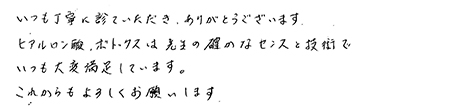 いつも丁寧に診ていただき、ありがとうございます.
ヒアルロン酸、ボトックスは先生の確かなセンスと技術で
いつも大変満足しています。
これからもよろしくお願いします